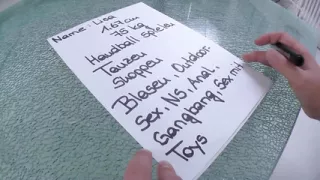 Name: Lisa
1.67 cm
75 kg
Handball spielen
Tanzen
Shoppen
Blasen, Outdoor
Sex, NS, Anal,
Gangbang, Sex mit
Toys